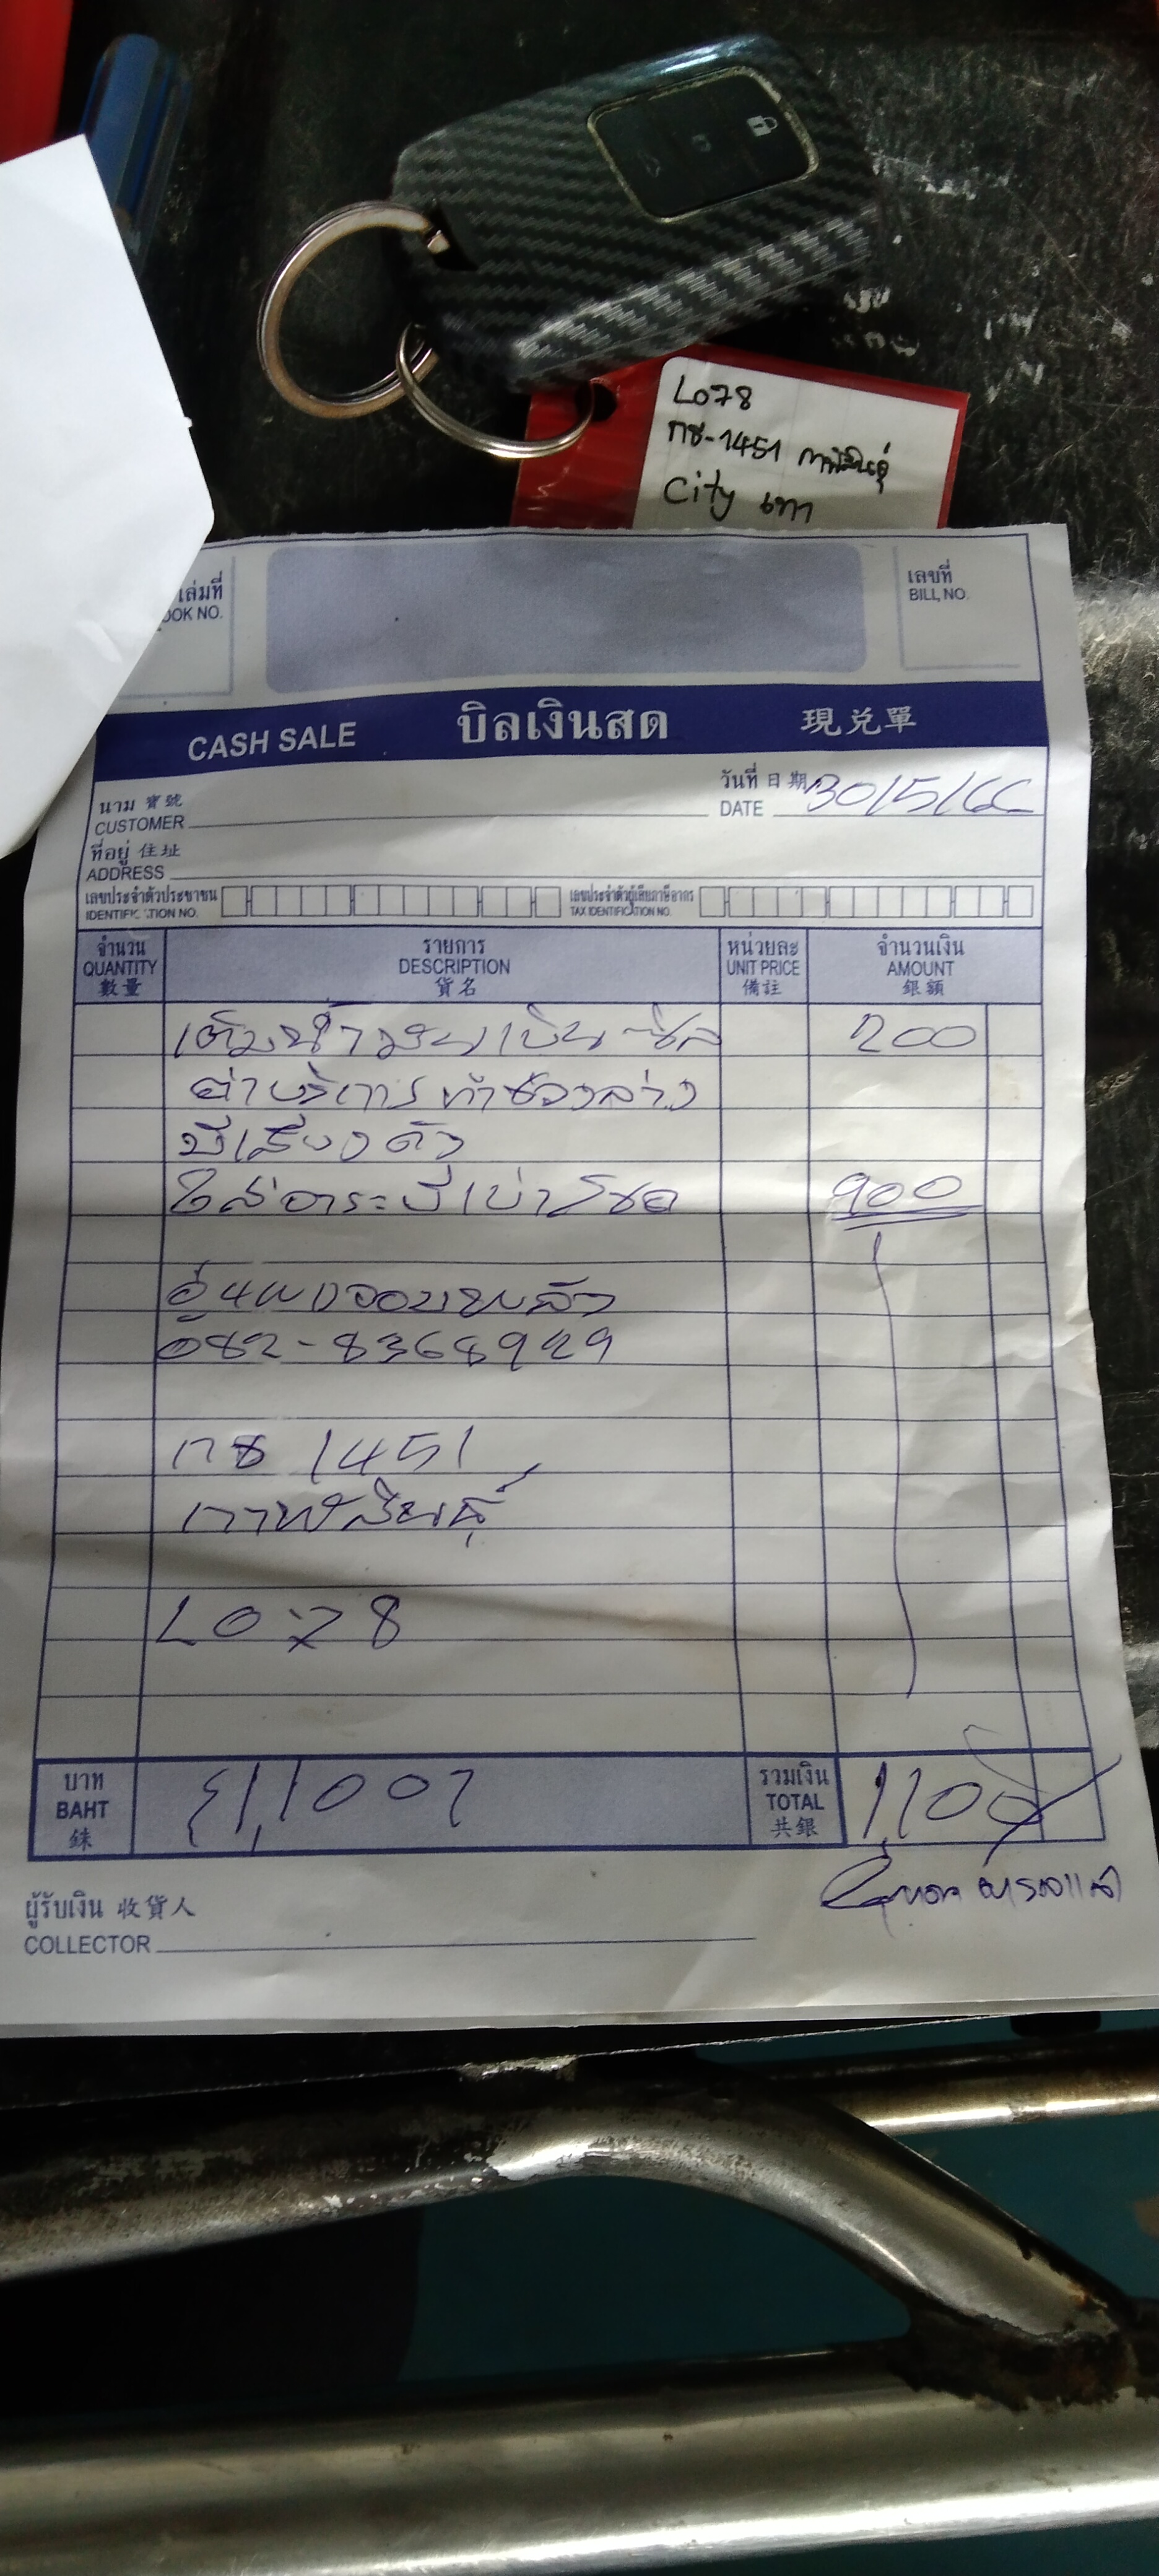 Lo78
กช-1451 กาฬสินธุ์
City เทา
เล่มที่
OOK NO.
เลขที่
BILL NO.
CASH SALE บิลเงินสด 現兑單
วันที่ 日期 30/5/66
DATE
นาม 寶號
CUSTOMER
ที่อยู่ 住址
ADDRESS
เลขประจำตัวประชาชน เลขประจำตัวผู้เสียภาษีอากร
IDENTIFICATION NO. TAX IDENTIFICATION NO.
จำนวน รายการ หน่วยละ จำนวนเงิน
QUANTITY DESCRIPTION UNIT PRICE AMOUNT
數量 貨名 備註 銀額
เติมน้ำมันเบนซิล 200
ค่าบริการทำช่วงล่าง
มีเสียงดัง
ใส่จาระบีเบ้าโชค 900
082-8368929
กช 1451
กาฬสินธุ์
LO 78
บาท รวมเงิน
BAHT 1,100 TOTAL 1,100
銖 共銀
ผู้รับเงิน 收貨人
COLLECTOR